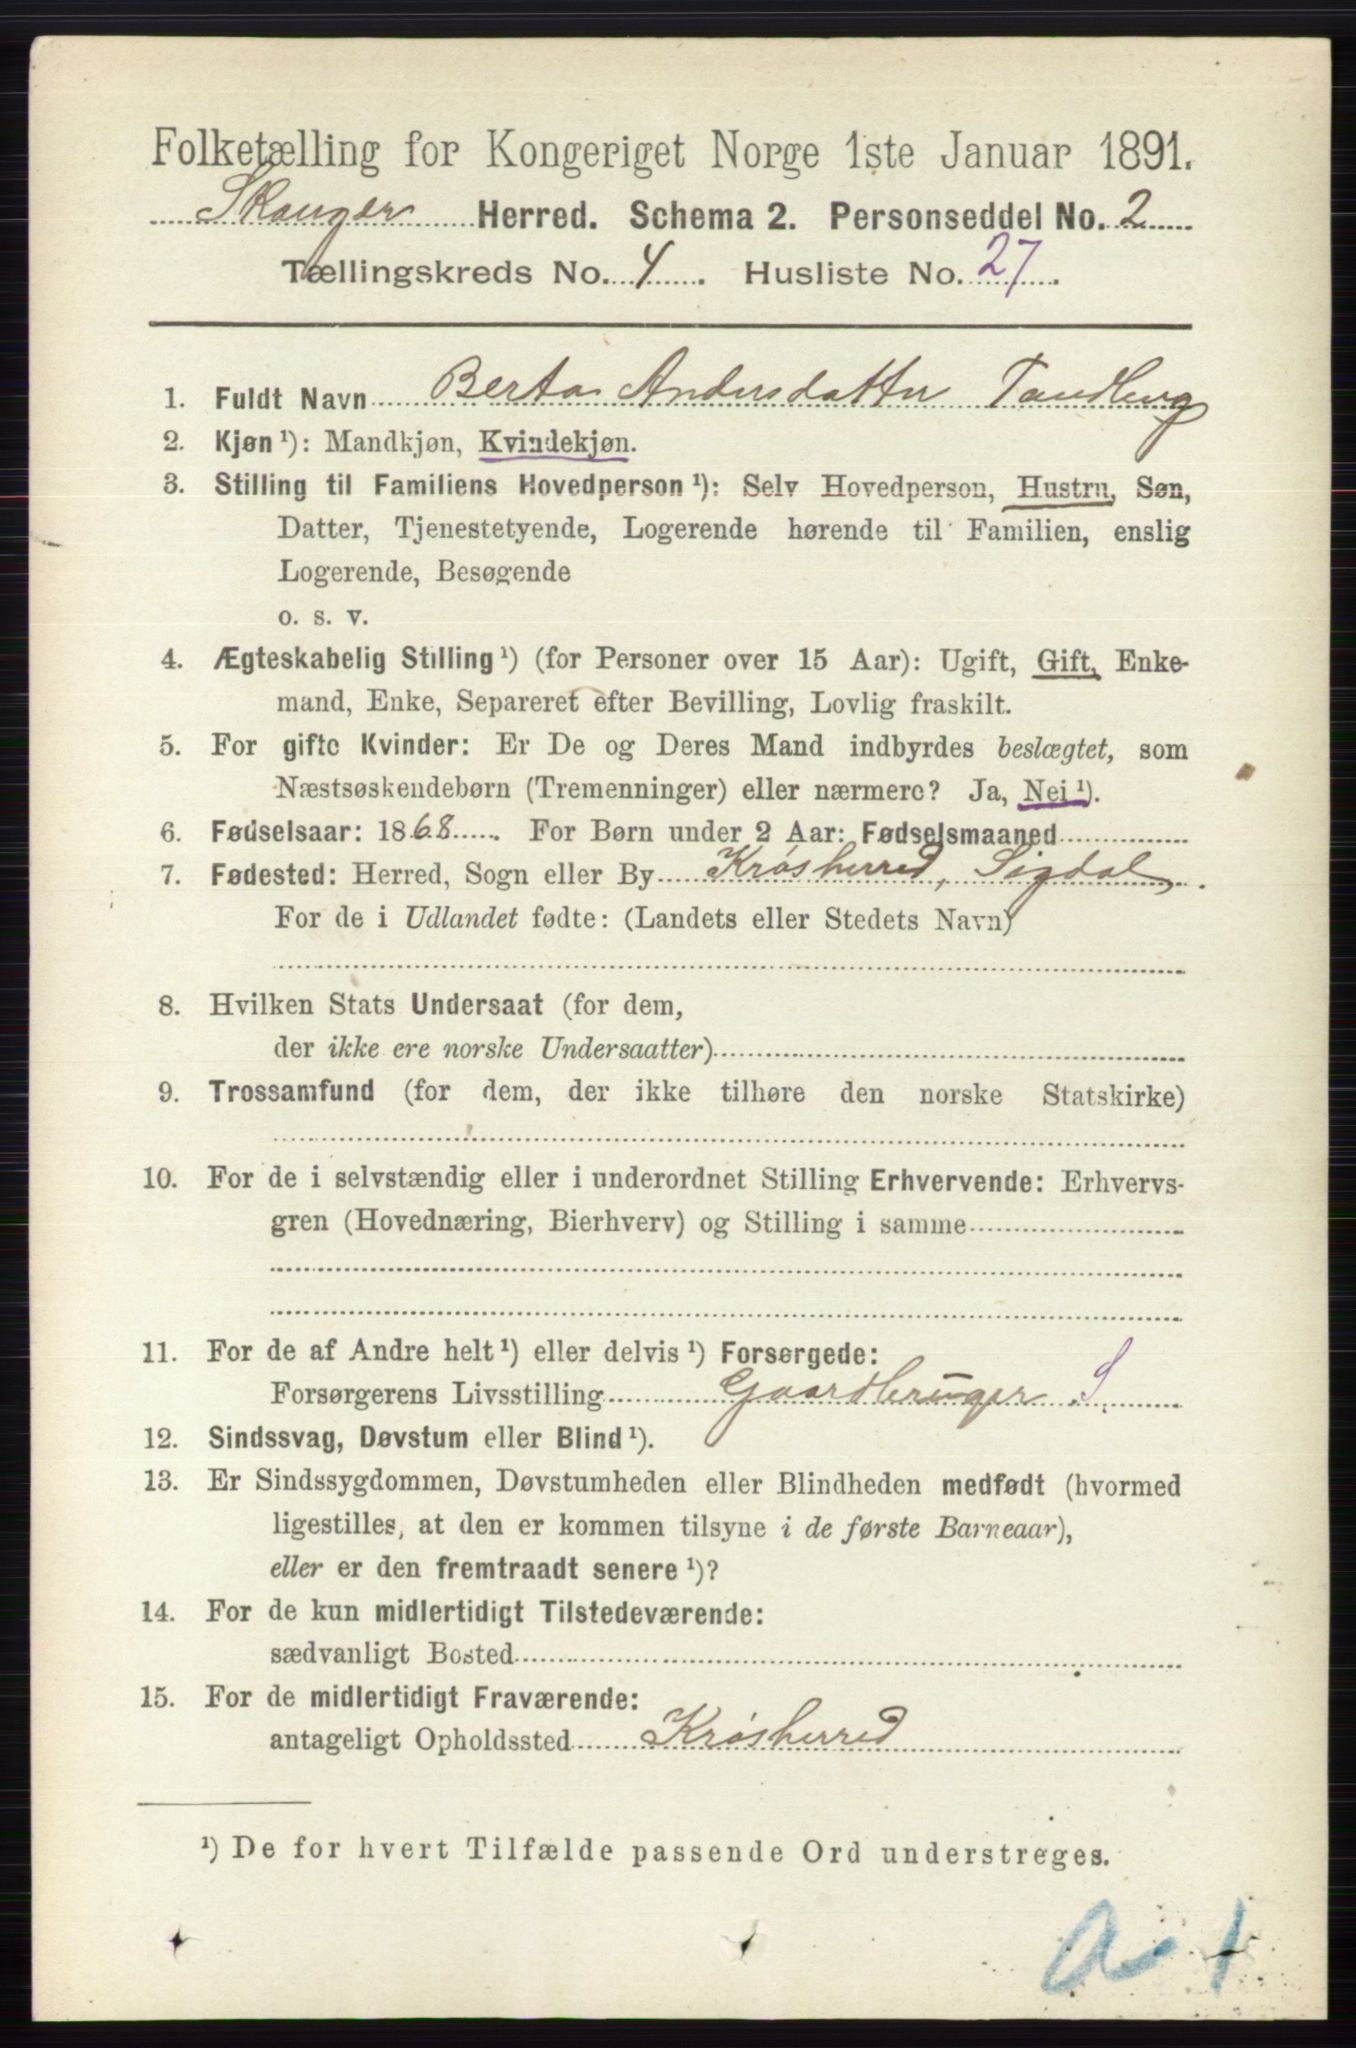 Folketælling for Kongeriget Norge 1ste Januar 1891.
Skauger Herred. Schema 2. Personseddel No. 2
Tællingskreds No. 4. Husliste No. 27.
1. Fuldt Navn Berta Andersdatter Tandberg
2. Kjøn ¹): Mandkjøn, Kvindekjøn.
3. Stilling til Familiens Hovedperson ¹): Selv Hovedperson, Hustru, Søn,
Datter, Tjenestetyende, Logerende hørende til Familien, enslig
Logerende, Besøgende
o. s. v.
4. Ægteskabelig Stilling ¹) (for Personer over 15 Aar): Ugift, Gift, Enke-
mand, Enke, Separeret efter Bevilling, Lovlig fraskilt.
5. For gifte Kvinder: Er De og Deres Mand indbyrdes beslægtet, som
Næstsøskendebørn (Tremenninger) eller nærmere? Ja, Nei ¹).
6. Fødselsaar: 1868. For Børn under 2 Aar: Fødselsmaaned
7. Fødested: Herred, Sogn eller By Krøsherred, Sigdal.
For de i Udlandet fødte: (Landets eller Stedets Navn)
8. Hvilken Stats Undersaat (for dem,
der ikke ere norske Undersaatter)
9. Trossamfund (for dem, der ikke tilhøre den norske Statskirke)
10. For de i selvstændig eller i underordnet Stilling Erhvervende: Erhvervs-
gren (Hovednæring, Bierhverv) og Stilling i samme
11. For de af Andre helt ¹) eller delvis ¹) Forsørgede:
Forsørgerens Livsstilling Gaardbruger S.
12. Sindssvag, Døvstum eller Blind ¹).
13. Er Sindssygdommen, Døvstumheden eller Blindheden medfødt (hvormed
ligestilles, at den er kommen tilsyne i de første Barneaar),
eller er den fremtraadt senere ¹)?
14. For de kun midlertidigt Tilstedeværende:
sædvanligt Bosted
15. For de midlertidigt Fraværende:
antageligt Opholdssted Krøsherred
¹) De for hvert Tilfælde passende Ord understreges.
a-1